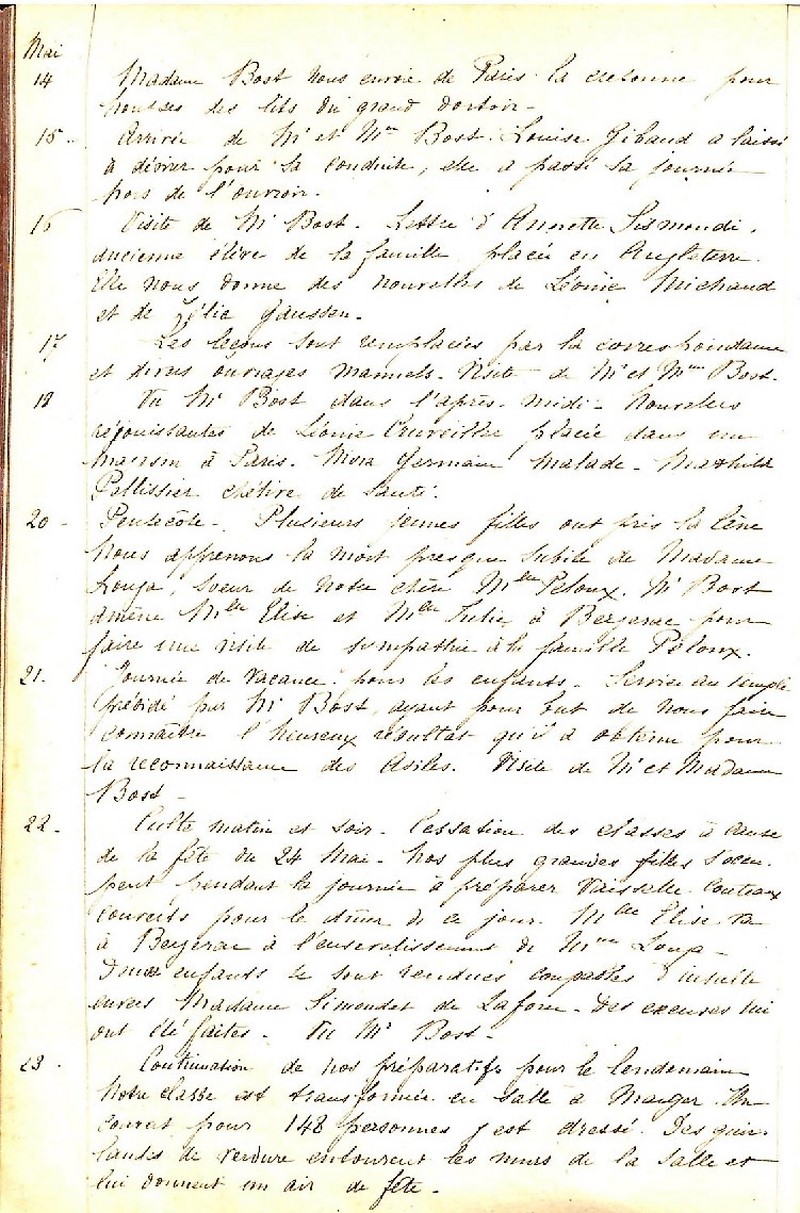 Mai
14 Madame Bost nous envoie de Paris la cretonne pour
housses des lits du grand dortoir -
15 - Arrivée de Mr et Mme Bost. Louise Gibaud a laissé
à désirer pour sa conduite, elle a passé sa journée
hors de l'ouvroir.
16 Visite de Mr Bost. Lettre d'Annette Sismondi,
ancienne élève de la famille placée en Angleterre.
Elle nous donne des nouvelles de Léonie Michaud
et de Zélie Gaussen.
17 Les leçons sont remplacées par la correspondance
et divers ouvrages manuels. Visite de Mr et Mme Bost.
18 Vu Mr Bost dans l'après-midi - Nouvelles
réjouissantes de Léonie placée dans une
maison à Paris. Germain malade - Mathilde
Pellissier chétive de santé.
20 - Pentecôte -. Plusieurs jeunes filles ont pris la Cène
Nous apprenons la mort presque subite de Madame
Louga, soeur de notre chère Mlle Peloux. Mr Bost
amène Mlle Elise et Mlle Julie à Bergerac pour
faire une visite de sympathie à la famille Peloux.
21. Journée de vacance pour les enfants. Service au temple
présidé par Mr Bost, ayant pour but de nous faire
connaître l'heureux résultat qu'il a obtenu pour
la reconnaissance des Asiles. Visite de Mr et Madame
Bost -
22 - Culte matin et soir - Cessation des classes à cause
de la fête du 24 Mai - Nos plus grandes filles s'occu-
pent pendant la journée à préparer vaisselle couteaux
couverts pour le dîner de ce jour. Mlle Elise va
à Bergerac à l'ensevelissement de Mme Louga -
enfants se sont rendues coupables d'insulte
envers Madame Simondet de Laforce - Des excuses lui
ont été faites - Vu Mr Bost -
23 - Continuation de nos préparatifs pour le lendemain
Notre classe est transformée en salle à manger. Un
couvert pour 148 personnes y est dressé. Des guir-
landes de verdure entourent les murs de la salle et
lui donnent un air de fête -